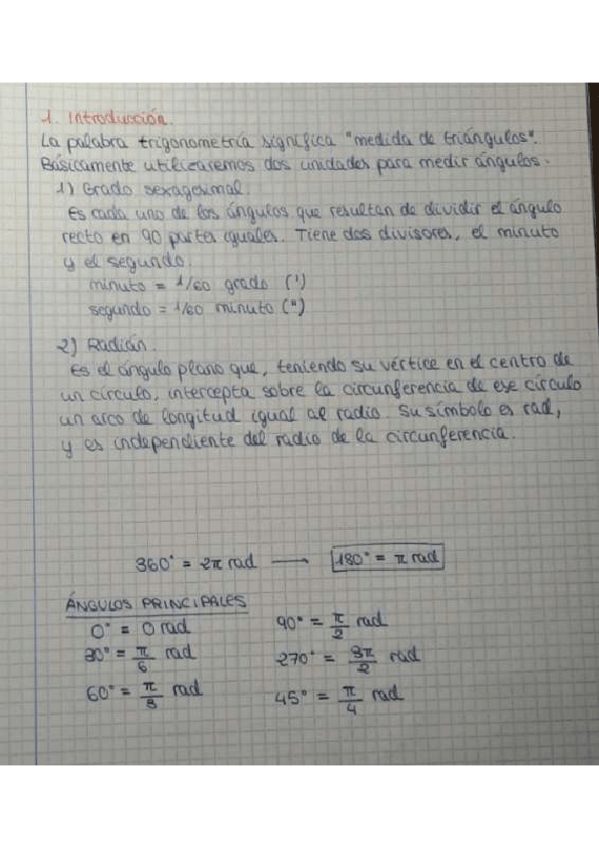 1. Introducción.
La palabra trigonometría significa "medida de triángulos".
Básicamente utilizaremos dos unidades para medir ángulos.
1) Grado sexagesimal
Es cada uno de los ángulos que resultan de dividir el ángulo
recto en 90 partes iguales. Tiene dos divisores, el minuto
y el segundo.
minuto = 1/60 grado (')
segundo = 1/60 minuto (")
2) Radián.
Es el ángulo plano que, teniendo su vértice en el centro de
un círculo, intercepta sobre la circunferencia de ese círculo
un arco de longitud igual al radio. Su símbolo es rad,
y es independiente del radio de la circunferencia.
360° = 2π rad → 180° = π rad
ÁNGULOS PRINCIPALES
0° = 0 rad 90° = π/2 rad
30° = π/6 rad 270° = 3π/2 rad
60° = π/3 rad 45° = π/4 rad